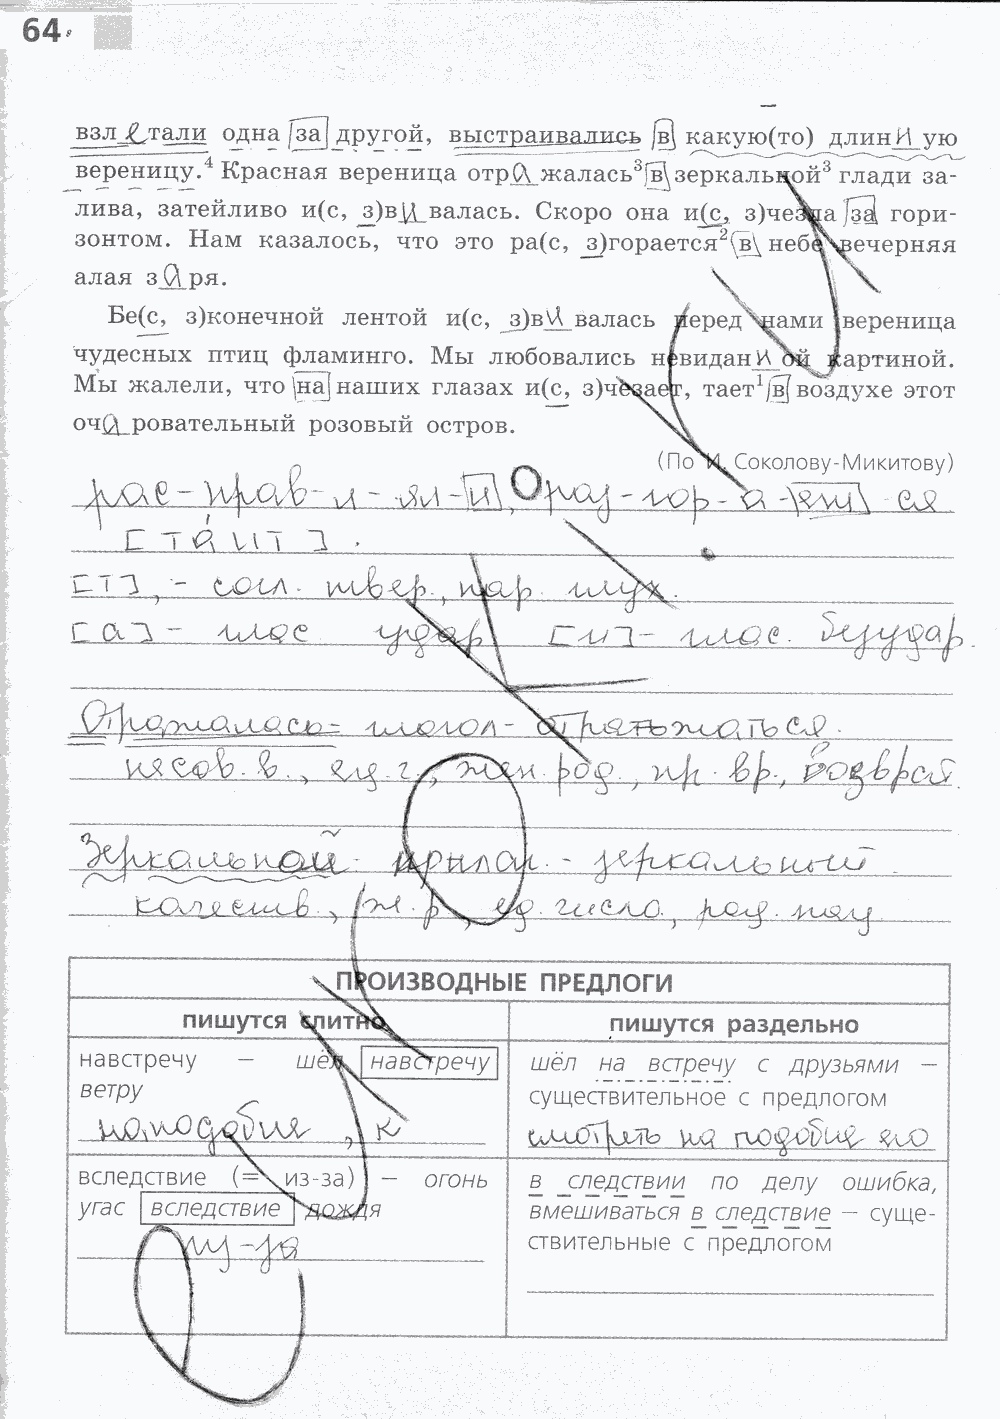 64
взлетали одна за другой, выстраивались в какую(то) длинную
вереницу.⁴ Красная вереница отражалась³ в зеркальной³ глади за-
лива, затейливо и(с, з)вивалась. Скоро она и(с, з)чезла за гори-
зонтом. Нам казалось, что это ра(с, з)горается² в небе вечерняя
алая заря.
Бе(с, з)конечной лентой и(с, з)вивалась перед нами вереница
чудесных птиц фламинго. Мы любовались невиданной картиной.
Мы жалели, что на наших глазах и(с, з)чезает, тает¹ в воздухе этот
очаровательный розовый остров.
(По И. Соколову-Микитову)
рас-прав-л-ял-и, О раз-гор-а-ет ся
[таит].
[т], - согл. твер., пар. глух.
[а] - глас удар [и] - глас. безудар.
Отражалась = глагол - отражаться.
несов. в., ед. г., жен. род., пр. вр., возврат.
Зеркальной - прилаг. - зеркальный
качеств., ж. р., ед. число, род. пад.
ПРОИЗВОДНЫЕ ПРЕДЛОГИ
пишутся слитно
пишутся раздельно
навстречу — шёл навстречу
ветру
наподобие, к
шёл на встречу с друзьями —
существительное с предлогом
смотреть на подобие его
вследствие (= из-за) — огонь
угас вследствие дождя
из-за
в следствии по делу ошибка,
вмешиваться в следствие — суще-
ствительные с предлогом